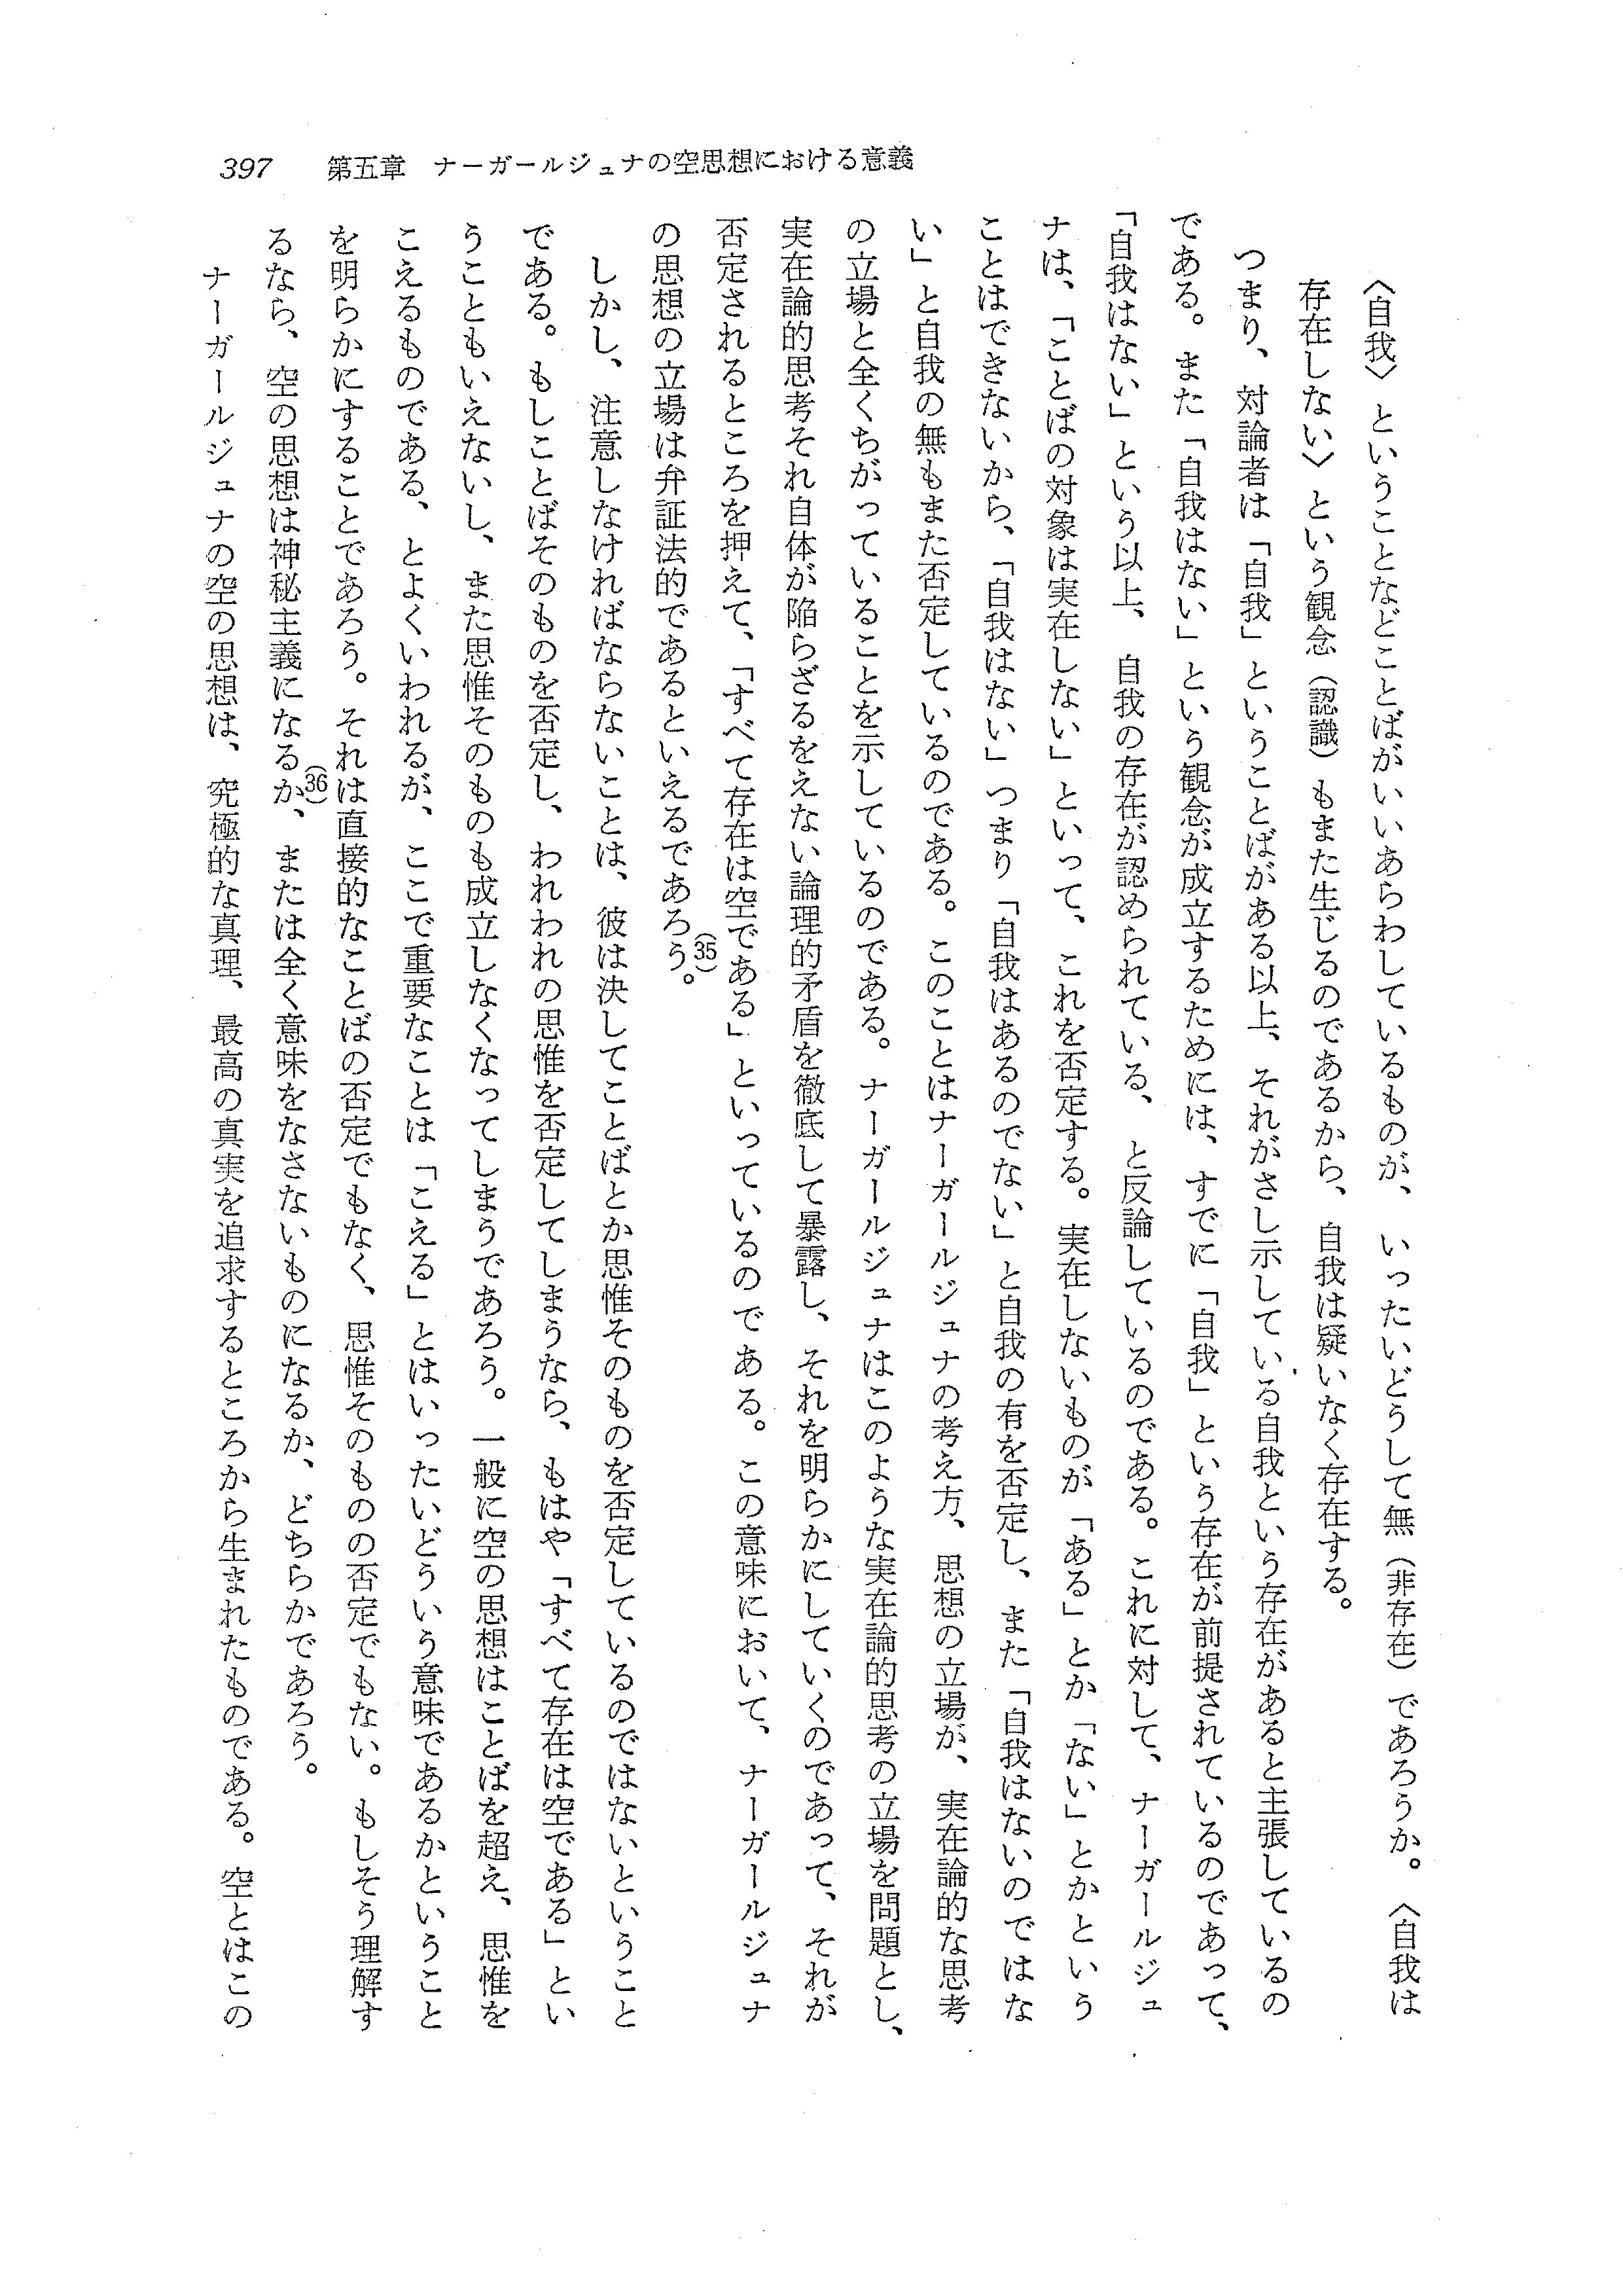 397　第五章　ナーガールジュナの空思想における意義
〈自我〉ということなどことばがいいあらわしているものが、いったいどうして無（非存在）であろうか。〈自我は
存在しない〉という観念（認識）もまた生じるのであるから、自我は疑いなく存在する。
つまり、対論者は「自我」ということばがある以上、それがさし示している自我という存在があると主張しているの
である。また「自我はない」という観念が成立するためには、すでに「自我」という存在が前提されているのであって、
「自我はない」という以上、自我の存在が認められている、と反論しているのである。これに対して、ナーガールジュ
ナは、「ことばの対象は実在しない」といって、これを否定する。実在しないものが「ある」とか「ない」とかという
ことはできないから、「自我はない」つまり「自我はあるのでない」と自我の有を否定し、また「自我はないのではな
い」と自我の無もまた否定しているのである。このことはナーガールジュナの考え方、思想の立場が、実在論的な思考
の立場と全くちがっていることを示しているのである。ナーガールジュナはこのような実在論的思考の立場を問題とし、
実在論的思考それ自体が陥らざるをえない論理的矛盾を徹底して暴露し、それを明らかにしていくのであって、それが
否定されるところを押えて、「すべて存在は空である」といっているのである。この意味において、ナーガールジュナ
の思想の立場は弁証法的であるといえるであろう。(35)
しかし、注意しなければならないことは、彼は決してことばとか思惟そのものを否定しているのではないということ
である。もしことばそのものを否定し、われわれの思惟を否定してしまうなら、もはや「すべて存在は空である」とい
うこともいえないし、また思惟そのものも成立しなくなってしまうであろう。一般に空の思想はことばを超え、思惟を
こえるものである、とよくいわれるが、ここで重要なことは「こえる」とはいったいどういう意味であるかということ
を明らかにすることであろう。それは直接的なことばの否定でもなく、思惟そのものの否定でもない。もしそう理解す
るなら、空の思想は神秘主義になるか、(36)または全く意味をなさないものになるか、どちらかであろう。
ナーガールジュナの空の思想は、究極的な真理、最高の真実を追求するところから生まれたものである。空とはこの